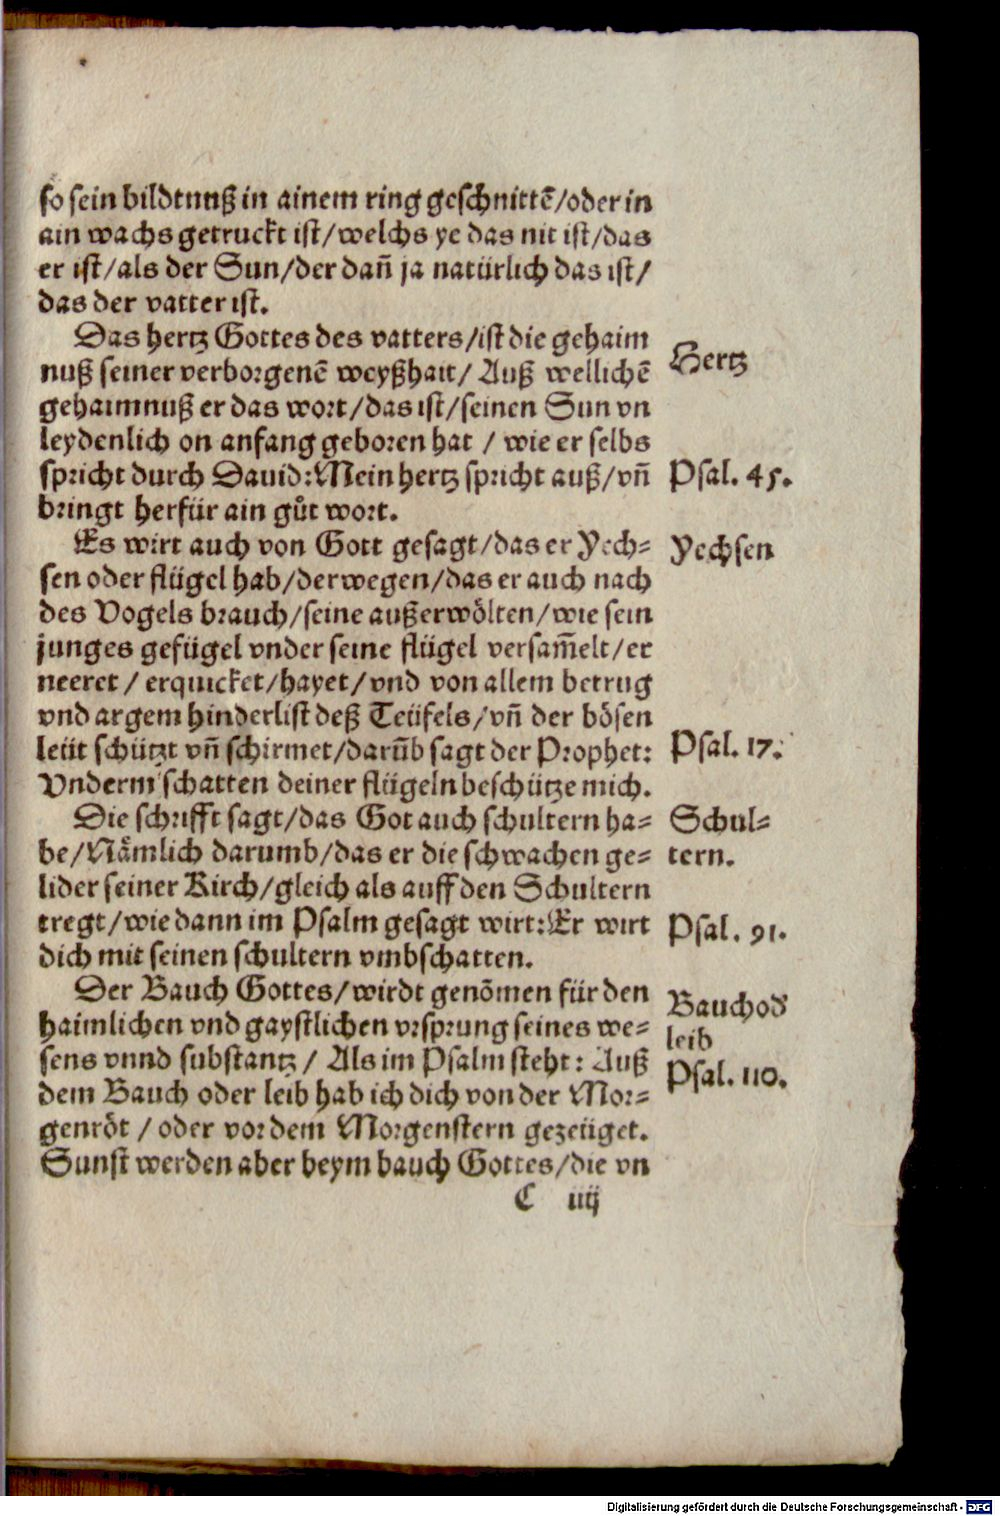 so sein bildtnuß in ainem ring geschnittē/oder in
ain wachs getruckt ist/welchs ye das nit ist/das
er ist/als der Sun/der dañ ja natürlich das ist/
das der vatter ist.
Das hertz Gottes des vatters/ist die gehaim
nuß seiner verborgenē weyßhait/ Auß wellichē
gehaimnuß er das wort/das ist/seinen Sun vn
leydenlich on anfang geboren hat / wie er selbs
spricht durch Dauid:Mein hertz spricht auß/vñ
bringt herfür ain gůt wort.
Es wirt auch von Gott gesagt/das er Yech⸗
sen oder flügel hab/derwegen/das er auch nach
des Vogels brauch/seine außerwölten/wie sein
junges gefügel vnder seine flügel versam̄elt/er
neeret / erquicket/hayet/vnd von allem betrug
vnd argem hinderlist deß Teüfels/vñ der bösen
leüt schützt vñ schirmet/darum̄b sagt der Prophet:
Vnderm schatten deiner flügeln beschütze mich.
Die schrifft sagt/das Got auch schultern ha⸗
be/Nämlich darumb/das er die schwachen ge⸗
lider seiner Kirch/gleich als auff den Schultern
tregt/wie dann im Psalm gesagt wirt:Er wirt
dich mit seinen schultern vmbschatten.
Der Bauch Gottes/wirdt genōmen für den
haimlichen vnd gaystlichen vrsprung seines we⸗
sens vnnd substantz / Als im Psalm steht: Auß
dem Bauch oder leib hab ich dich von der Mor⸗
genröt / oder vor dem Morgenstern gezeüget.
Sunst werden aber beym bauch Gottes/die vn
C iiij
Hertz
Psal. 45.
Yechsen
Psal. 17.
Schul⸗
tern.
Psal. 91.
Bauch od̛
leib
Psal. 110.
Digitalisierung gefördert durch die Deutsche Forschungsgemeinschaft - DFG